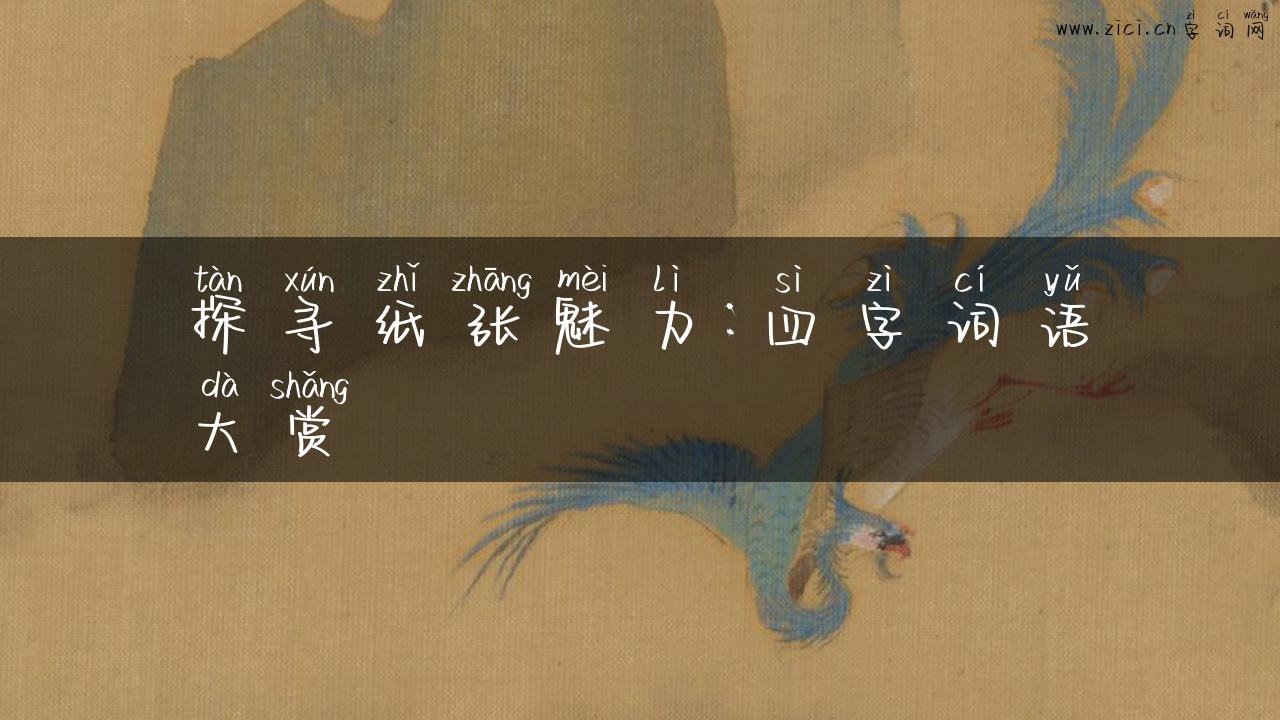 zì cí wǎng
www.zici.cn字词网
tàn xún zhǐ zhāng mèi lì sì zì cí yǔ
探寻纸张魅力:四字词语
dà shǎng
大赏